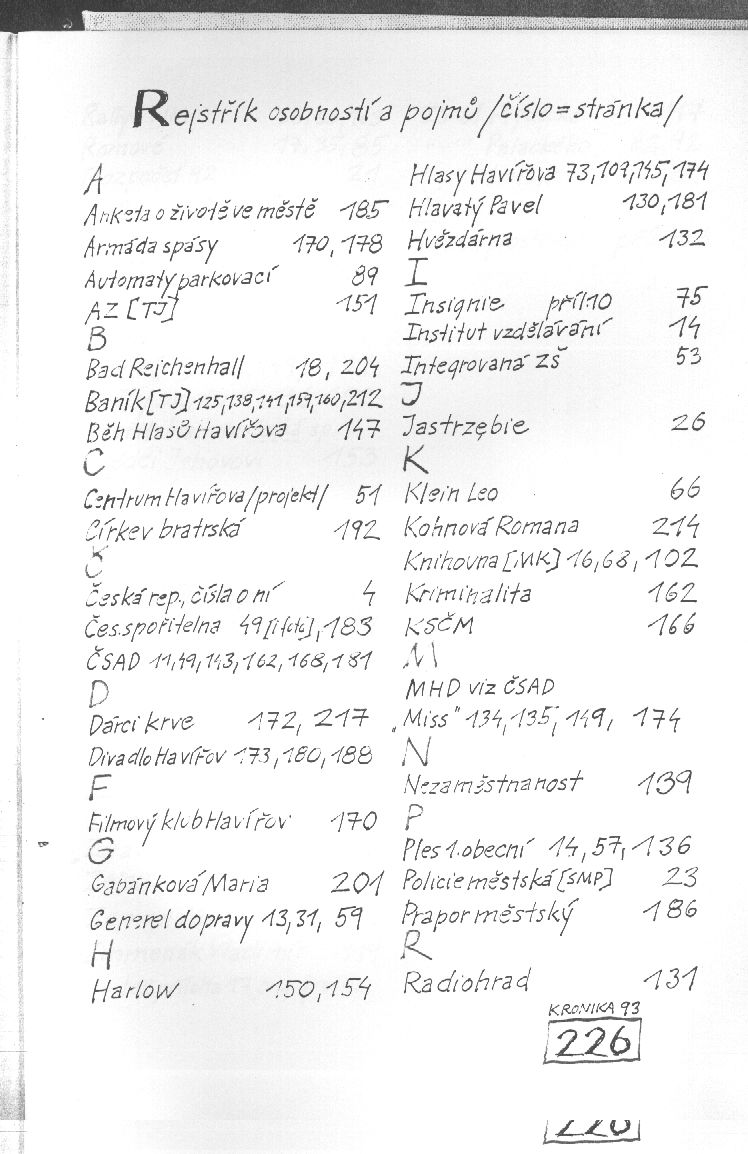 Rejstřík osobností a pojmů /číslo=stránka/
A
Anketa o životě ve městě 185
Armáda spásy 170, 178
Automaty parkovací 89
AZ [TJ] 151
B
Bad Reichenhall 18, 204
Baník [TJ] 125, 138, 141, 157, 160, 212
Běh Hlasů Havířova 147
C
Centrum Havířova /projekt/ 51
Církev bratrská 192
Č
Česká rep., čísla o ní 4
Čes. spořitelna 49 [i foto], 183
ČSAD 11, 49, 143, 162, 168, 181
D
Dárci krve 172, 217
Divadlo Havířov 173, 180, 188
F
Filmový klub Havířov 170
G
Gabánková Maria 201
Generel dopravy 13, 31, 59
H
Harlow 150, 154
Hlasy Havířova 73, 109, 145, 174
Hlavatý Pavel 130, 181
Hvězdárna 132
I
Insignie příl 10 75
Institut vzdělávání 14
Integrovaná ZŠ 53
J
Jastrzębie 26
K
Klein Leo 66
Kohnová Romana 214
Knihovna [MK] 16, 68, 102
Kriminalita 162
KSČM 166
M
MHD viz ČSAD
„Miss" 134, 135, 149, 174
N
Nezaměstnanost 139
P
Ples 1. obecní 14, 57, 136
Policie městská [SMP] 23
Prapor městský 186
R
Radiohrad 131
KRONIKA 93
226